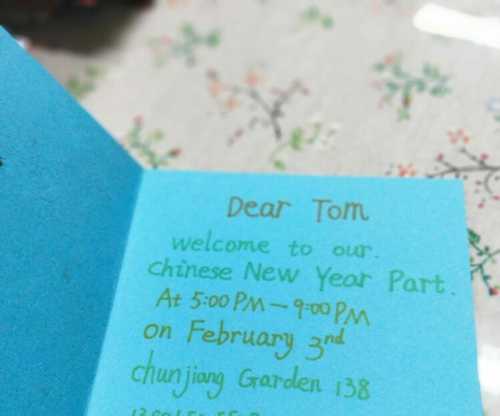 Dear Tom
welcome to our.
chinese New Year Part.
At 5:00 PM — 9:00 PM
on February 3nd
chunjiang Garden 138